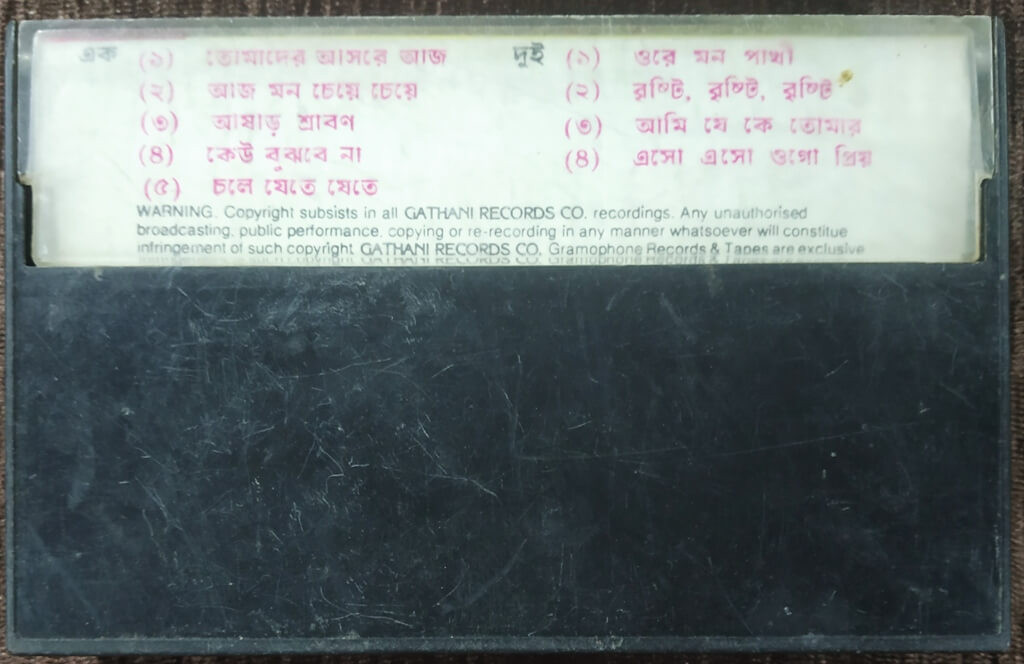 এক (১) তোমাদের আসরে আজ
(২) আজ মন চেয়ে চেয়ে
(৩) আষাঢ় শ্রাবণ
(৪) কেউ বুঝবে না
(৫) চলে যেতে যেতে
দুই (১) ওরে মন পাখী
(২) বৃষ্টি, বৃষ্টি, বৃষ্টি
(৩) আমি যে কে তোমার
(৪) এসো এসো ওগো প্রিয়
WARNING. Copyright subsists in all GATHANI RECORDS CO. recordings. Any unauthorised
broadcasting, public performance, copying or re-recording in any manner whatsoever will constitute
infringement of such copyright GATHANI RECORDS CO. Gramophone Records & Tapes are exclusive